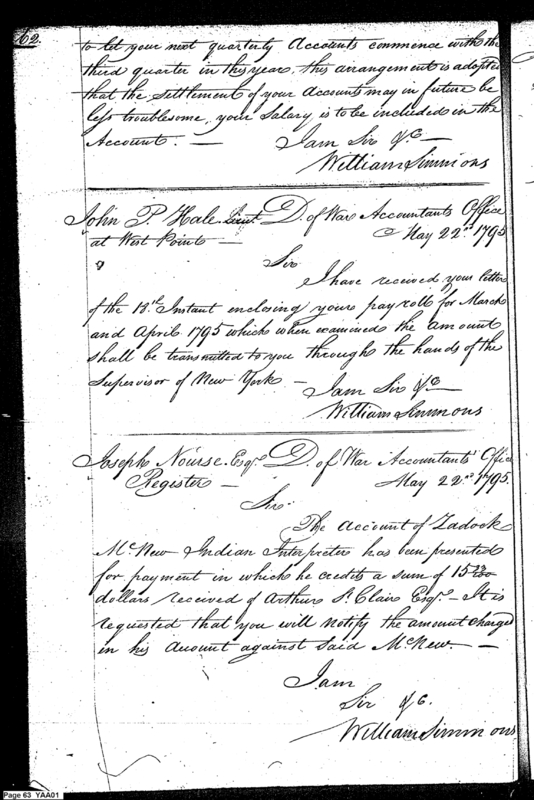 62.
to let your next quarterly Accounts commence with the
third quarter in this year, this arrangement is adopted
that the settlement of your accounts may in future be
less troublesome, your Salary is to be included in the
Account. —
I am Sir &c
William Simmons
John P. Hale Lieut. D. of War Accountants Office
at West Point — May 22nd 1795
Sir
I have received your letter
of the Instant enclosing your payroll for March
and April 1795 which when examined the amount
shall be transmitted to you through the hands of the
Supervisor of New York —
I am Sir &c
William Simmons
Joseph Nourse Esqr. D. of War Accountants Office
Register — May 22nd 1795.
Sir.
The Account of Zadock
McNew Indian Interpreter has been presented
for payment in which he credits a sum of 15
dollars received of Arthur St. Clair Esqr. — It is
requested that you will notify the amount charged
in his account against said McNew. —
I am
Sir &c.
William Simmons
Page 63 YAA01